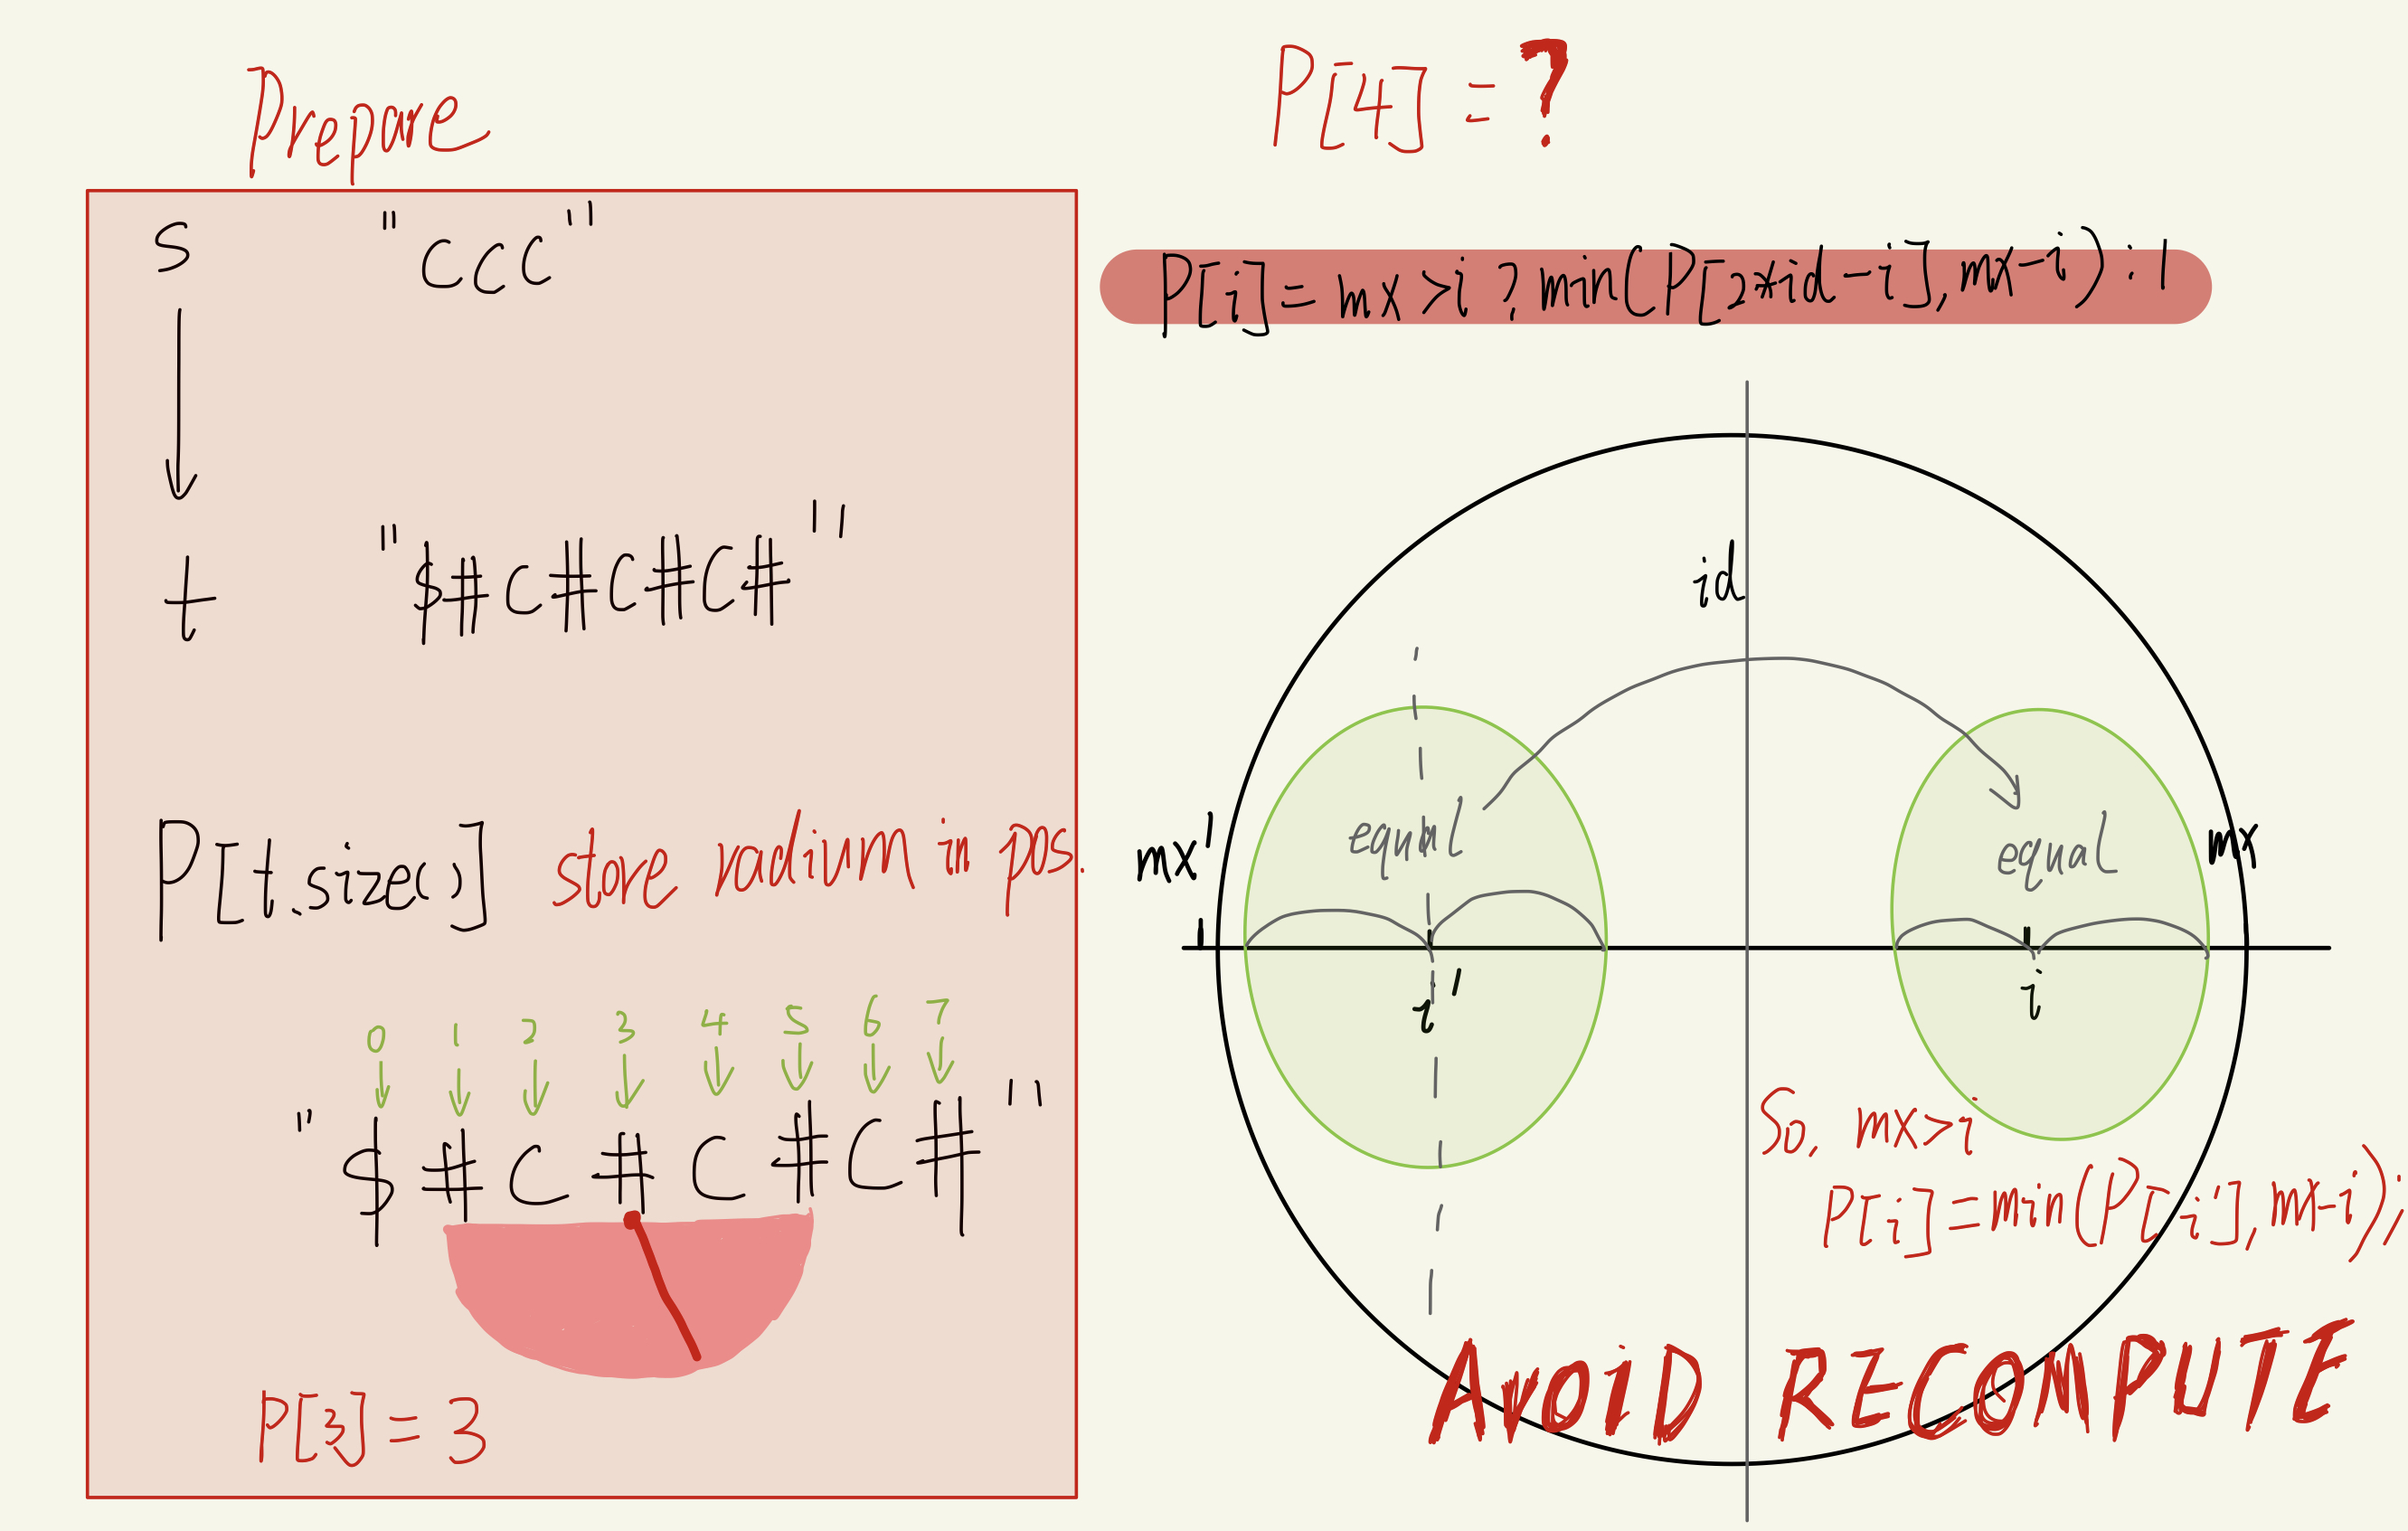 Prepare
S "CCC"
t "$#C#C#C#"
P[t.size()] store radium in ps.
0 1 2 3 4 5 6 7
"$#C#C#C#"
P[3] = 3
P[4] = ?
P[i] = mx > i ? min(P[2*id-i], mx-i) : 1
id
equal equal
mx' mx
i' i
So, mx>i
P[i] = min(P[i'], mx-i);
AVOID RECOMPUTE